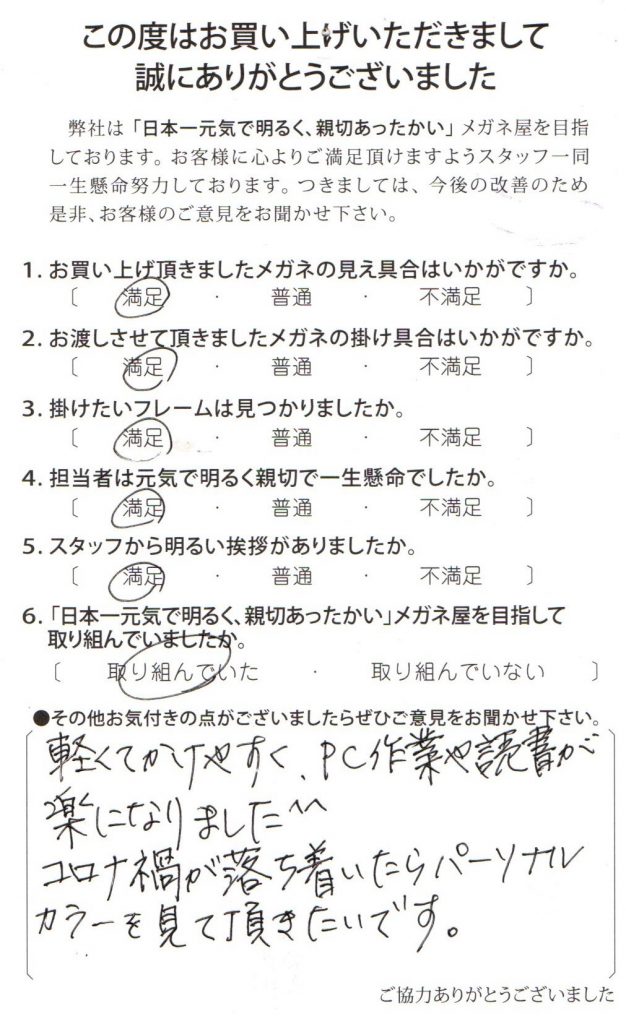 この度はお買い上げいただきまして
誠にありがとうございました
弊社は「日本一元気で明るく、親切あったかい」メガネ屋を目指
しております。お客様に心よりご満足頂けますようスタッフ一同
一生懸命努力しております。つきましては、今後の改善のため
是非、お客様のご意見をお聞かせ下さい。
1. お買い上げ頂きましたメガネの見え具合はいかがですか。
〔 満足 ・ 普通 ・ 不満足 〕
2. お渡しさせて頂きましたメガネの掛け具合はいかがですか。
〔 満足 ・ 普通 ・ 不満足 〕
3. 掛けたいフレームは見つかりましたか。
〔 満足 ・ 普通 ・ 不満足 〕
4. 担当者は元気で明るく親切で一生懸命でしたか。
〔 満足 ・ 普通 ・ 不満足 〕
5. スタッフから明るい挨拶がありましたか。
〔 満足 ・ 普通 ・ 不満足 〕
6.「日本一元気で明るく、親切あったかい」メガネ屋を目指して
取り組んでいましたか。
〔 取り組んでいた ・ 取り組んでいない 〕
●その他お気付きの点がございましたらぜひご意見をお聞かせ下さい。
軽くてかけやすく、PC作業や読書が
楽になりました^^
コロナ禍が落ち着いたらパーソナル
カラーを見て頂きたいです。
ご協力ありがとうございました